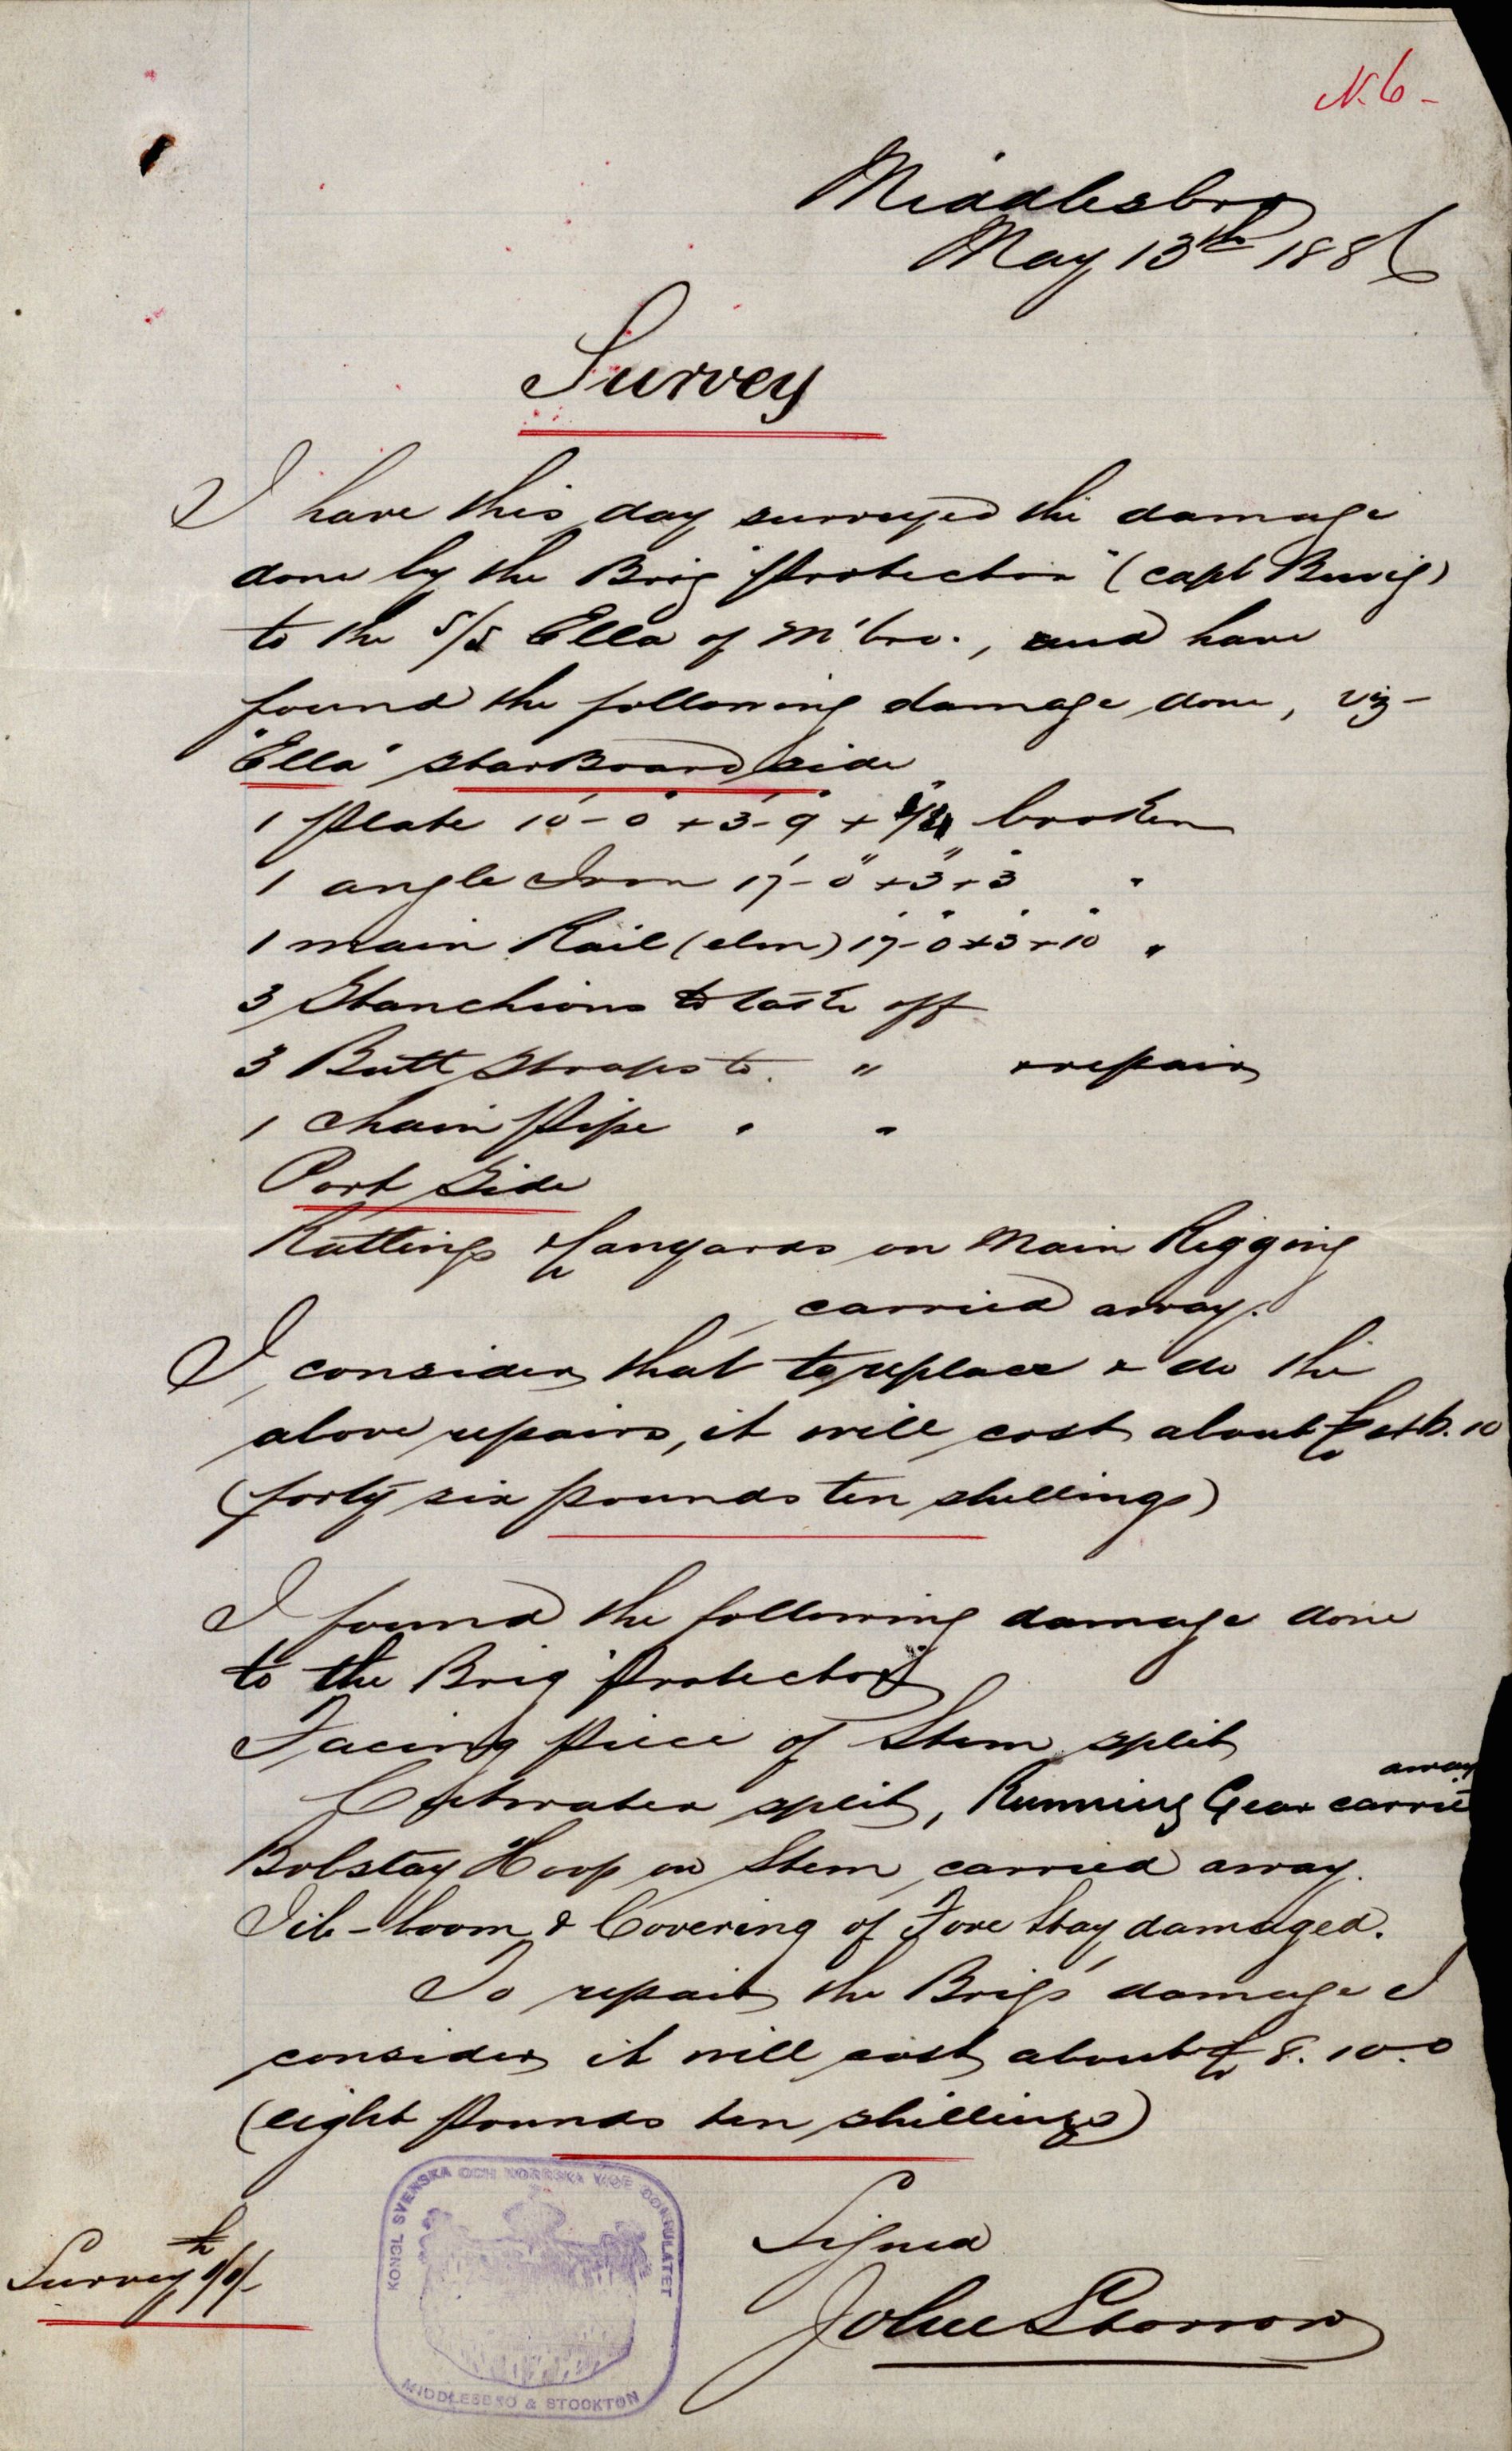 N. 6 -
Middlesbro
May 13th 1886
Survey
I have this day surveyed the damage
done by the Brig "Protector" (capt
to the S/S Ella of M'bro., and have
found the following damage done, viz -
"Ella" StarBoard side
1 Plate 10'-0" + 3'-9" + broken
1 angle Iron 17'-0" + 3" + 3" "
1 main Rail (elm) 17'-0" + 3" + 10" "
3 Stanchions to take off
3 Butt Straps to " + repair
1 Chain Pipe " "
Port Side
Rattlings & Lanyards on Main Rigging
carried away.
I consider that to replace & do the
above repairs, it will cost about £46. 10
(forty six pounds ten shillings)
I found the following damage done
to the Brig "Protector"
Facing Piece of Stem split
Cutwater split, Running Gear carried away
Bobstay Hoop on Stem carried away.
Jib-boom & Covering of Fore Stay damaged.
To repair the Brig's damage I
consider it will cost about £8. 10. 0
(eight Pounds ten shillings)
Signed
John Storrow
Survey
KONGL SVENSKA OCH NORRSKA VICE CONSULATET
MIDDLESBRO & STOCKTON